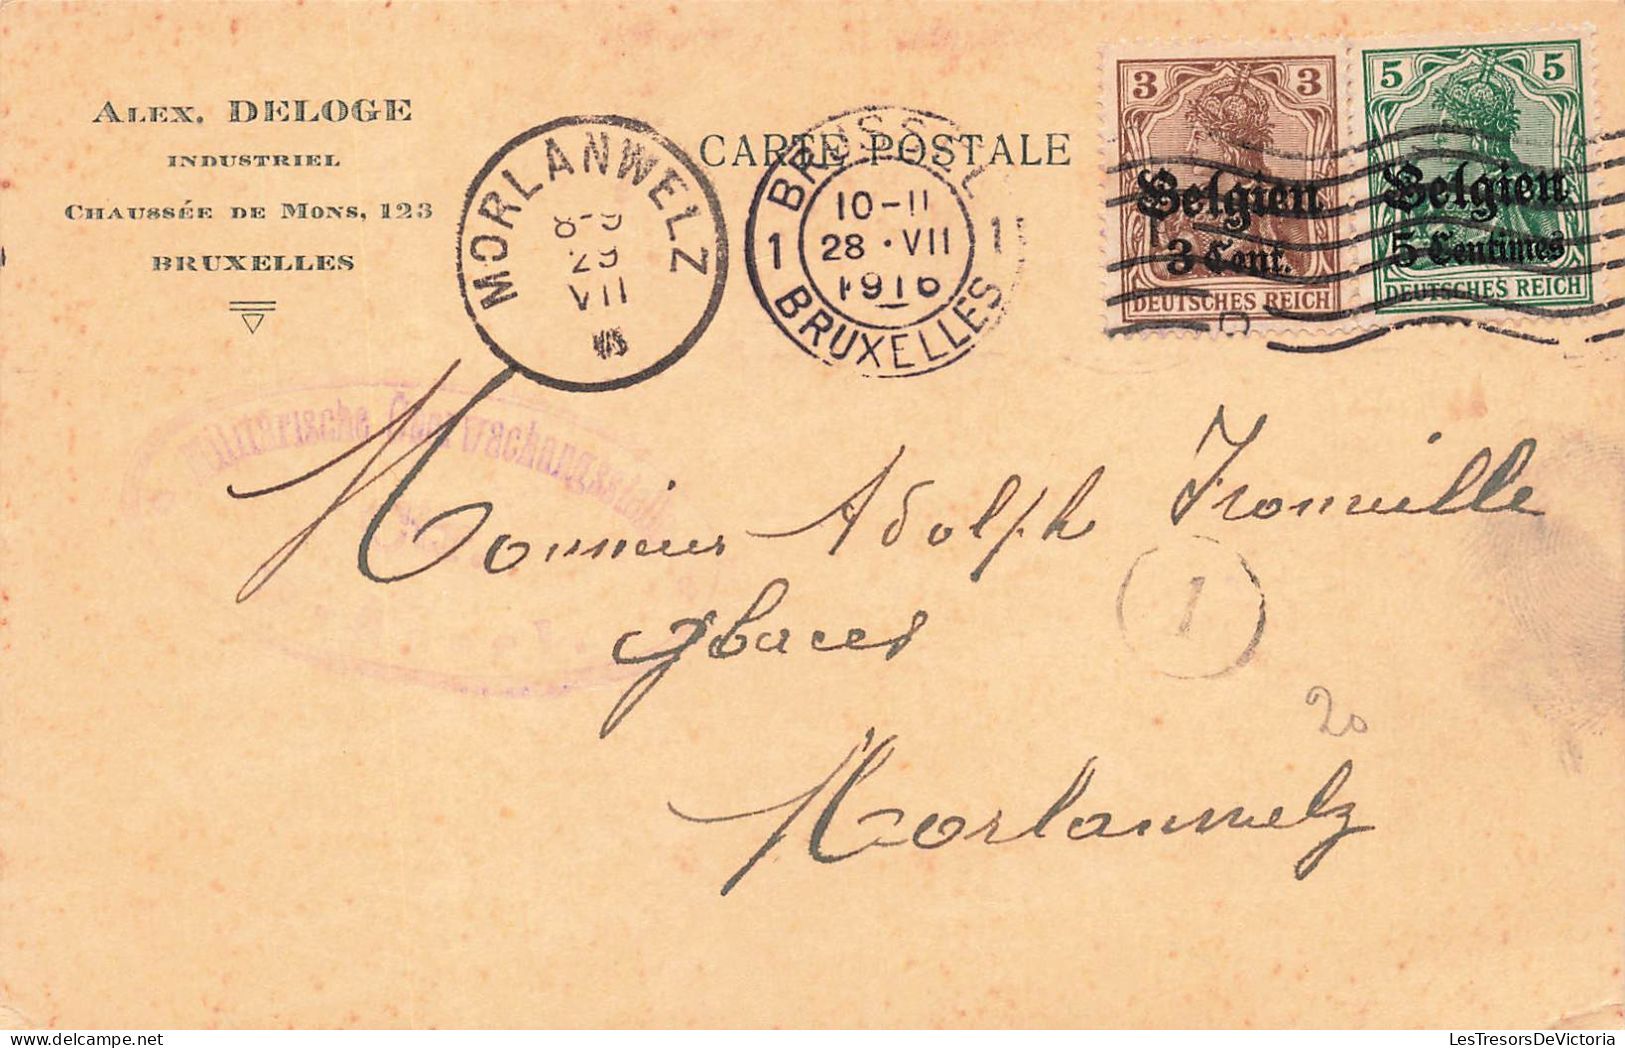 ALEX. DELOGE
INDUSTRIEL
CHAUSSÉE DE MONS, 123
BRUXELLES
CARTE POSTALE
MORLANWELZ
8-9
29
VII
BRUSSEL
1 10-11 1
28 · VII
1916
BRUXELLES
3 3
Belgien
3 Cent.
DEUTSCHES REICH
5 5
Belgien
5 Centimes
DEUTSCHES REICH
Militärische Überwachungsstelle
Monsieur Adolph
1
20
Morlanwelz
LesTresorsDeVictoria